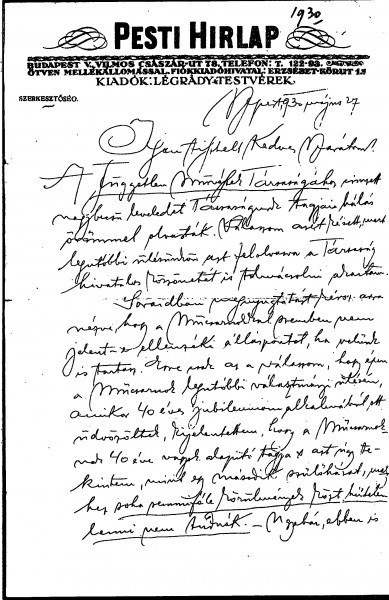 1930
PESTI HIRLAP
BUDAPEST V., VILMOS CSÁSZÁR-UT 78, TELEFON: T. 122-93.
ÖTVEN MELLÉKÁLLOMÁSSAL. FIÓKKIADÓHIVATAL: ERZSÉBET-KÖRUT 1.
KIADÓK: LÉGRÁDY TESTVÉREK.
SZERKESZTŐSÉG.
Bpest, 930 27
Igen tisztelt Kedves Barátom!
A Független Művészek Társaságához intézett
nagybecsű leveledet Társaságunk tagjai hálás
örömmel olvasták. Válaszom azért késett, mert
legutóbbi ülésünkön azt felolvasva a Társaság
hivatalos köszönetét is tolmácsolni akartam.
Soraidban kérsz arra
nézve, hogy a Műcsarnokkal szemben nem
jelent-e ellenzéki álláspontot, ha velünk
is tartasz. Erre csak az a válaszom, hogy épen
a Műcsarnok legutóbbi választmányi ülésén,
amikor 40 éves jubileumom alkalmából ott
üdvözöltek, kijelentettem, hogy a Műcsarnok-
nak 40 éve vagyok alapító tagja s azt úgy te-
kintem, mint egy második szülőházat, mely-
hez soha semmiféle körülmények közt hűtelen
lenni nem tudnék. — ebben is